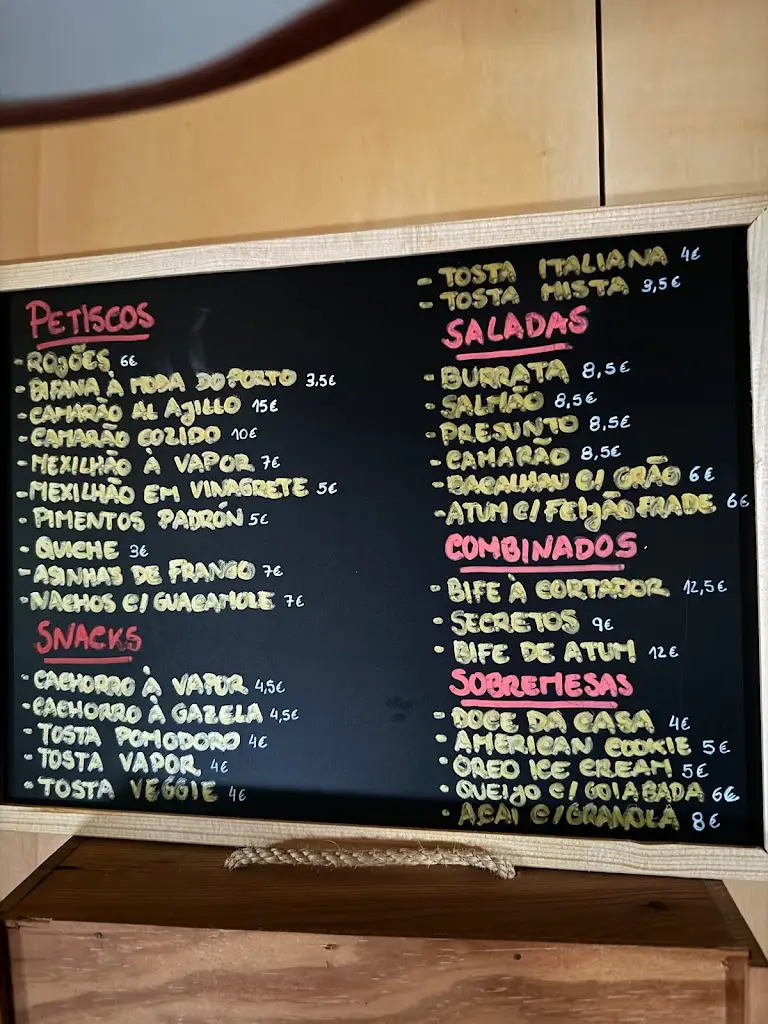 PETISCOS
- ROJÕES 6€
- BIFANA À MODA DO PORTO 3,5€
- CAMARÃO AL AJILLO 15€
- CAMARÃO COZIDO 10€
- MEXILHÃO À VAPOR 7€
- MEXILHÃO EM VINAGRETE 5€
- PIMENTOS PADRÓN 5€
- QUICHE 3€
- ASINHAS DE FRANGO 7€
- NACHOS C/ GUACAMOLE 7€
SNACKS
- CACHORRO À VAPOR 4,5€
- CACHORRO À GAZELA 4,5€
- TOSTA POMODORO 4€
- TOSTA VAPOR 4€
- TOSTA VEGGIE 4€
- TOSTA ITALIANA 4€
- TOSTA MISTA 3,5€
SALADAS
- BURRATA 8,5€
- SALMÃO 8,5€
- PRESUNTO 8,5€
- CAMARÃO 8,5€
- BACALHAU C/ GRÃO 6€
- ATUM C/ FEIJÃO FRADE 6€
COMBINADOS
- BIFE À CORTADOR 12,5€
- SECRETOS 9€
- BIFE DE ATUM 12€
SOBREMESAS
- DOCE DA CASA 4€
- AMERICAN COOKIE 5€
- OREO ICE CREAM 5€
- QUEIJO C/ GOIABADA 6€
- AÇAI C/ GRANOLA 8€